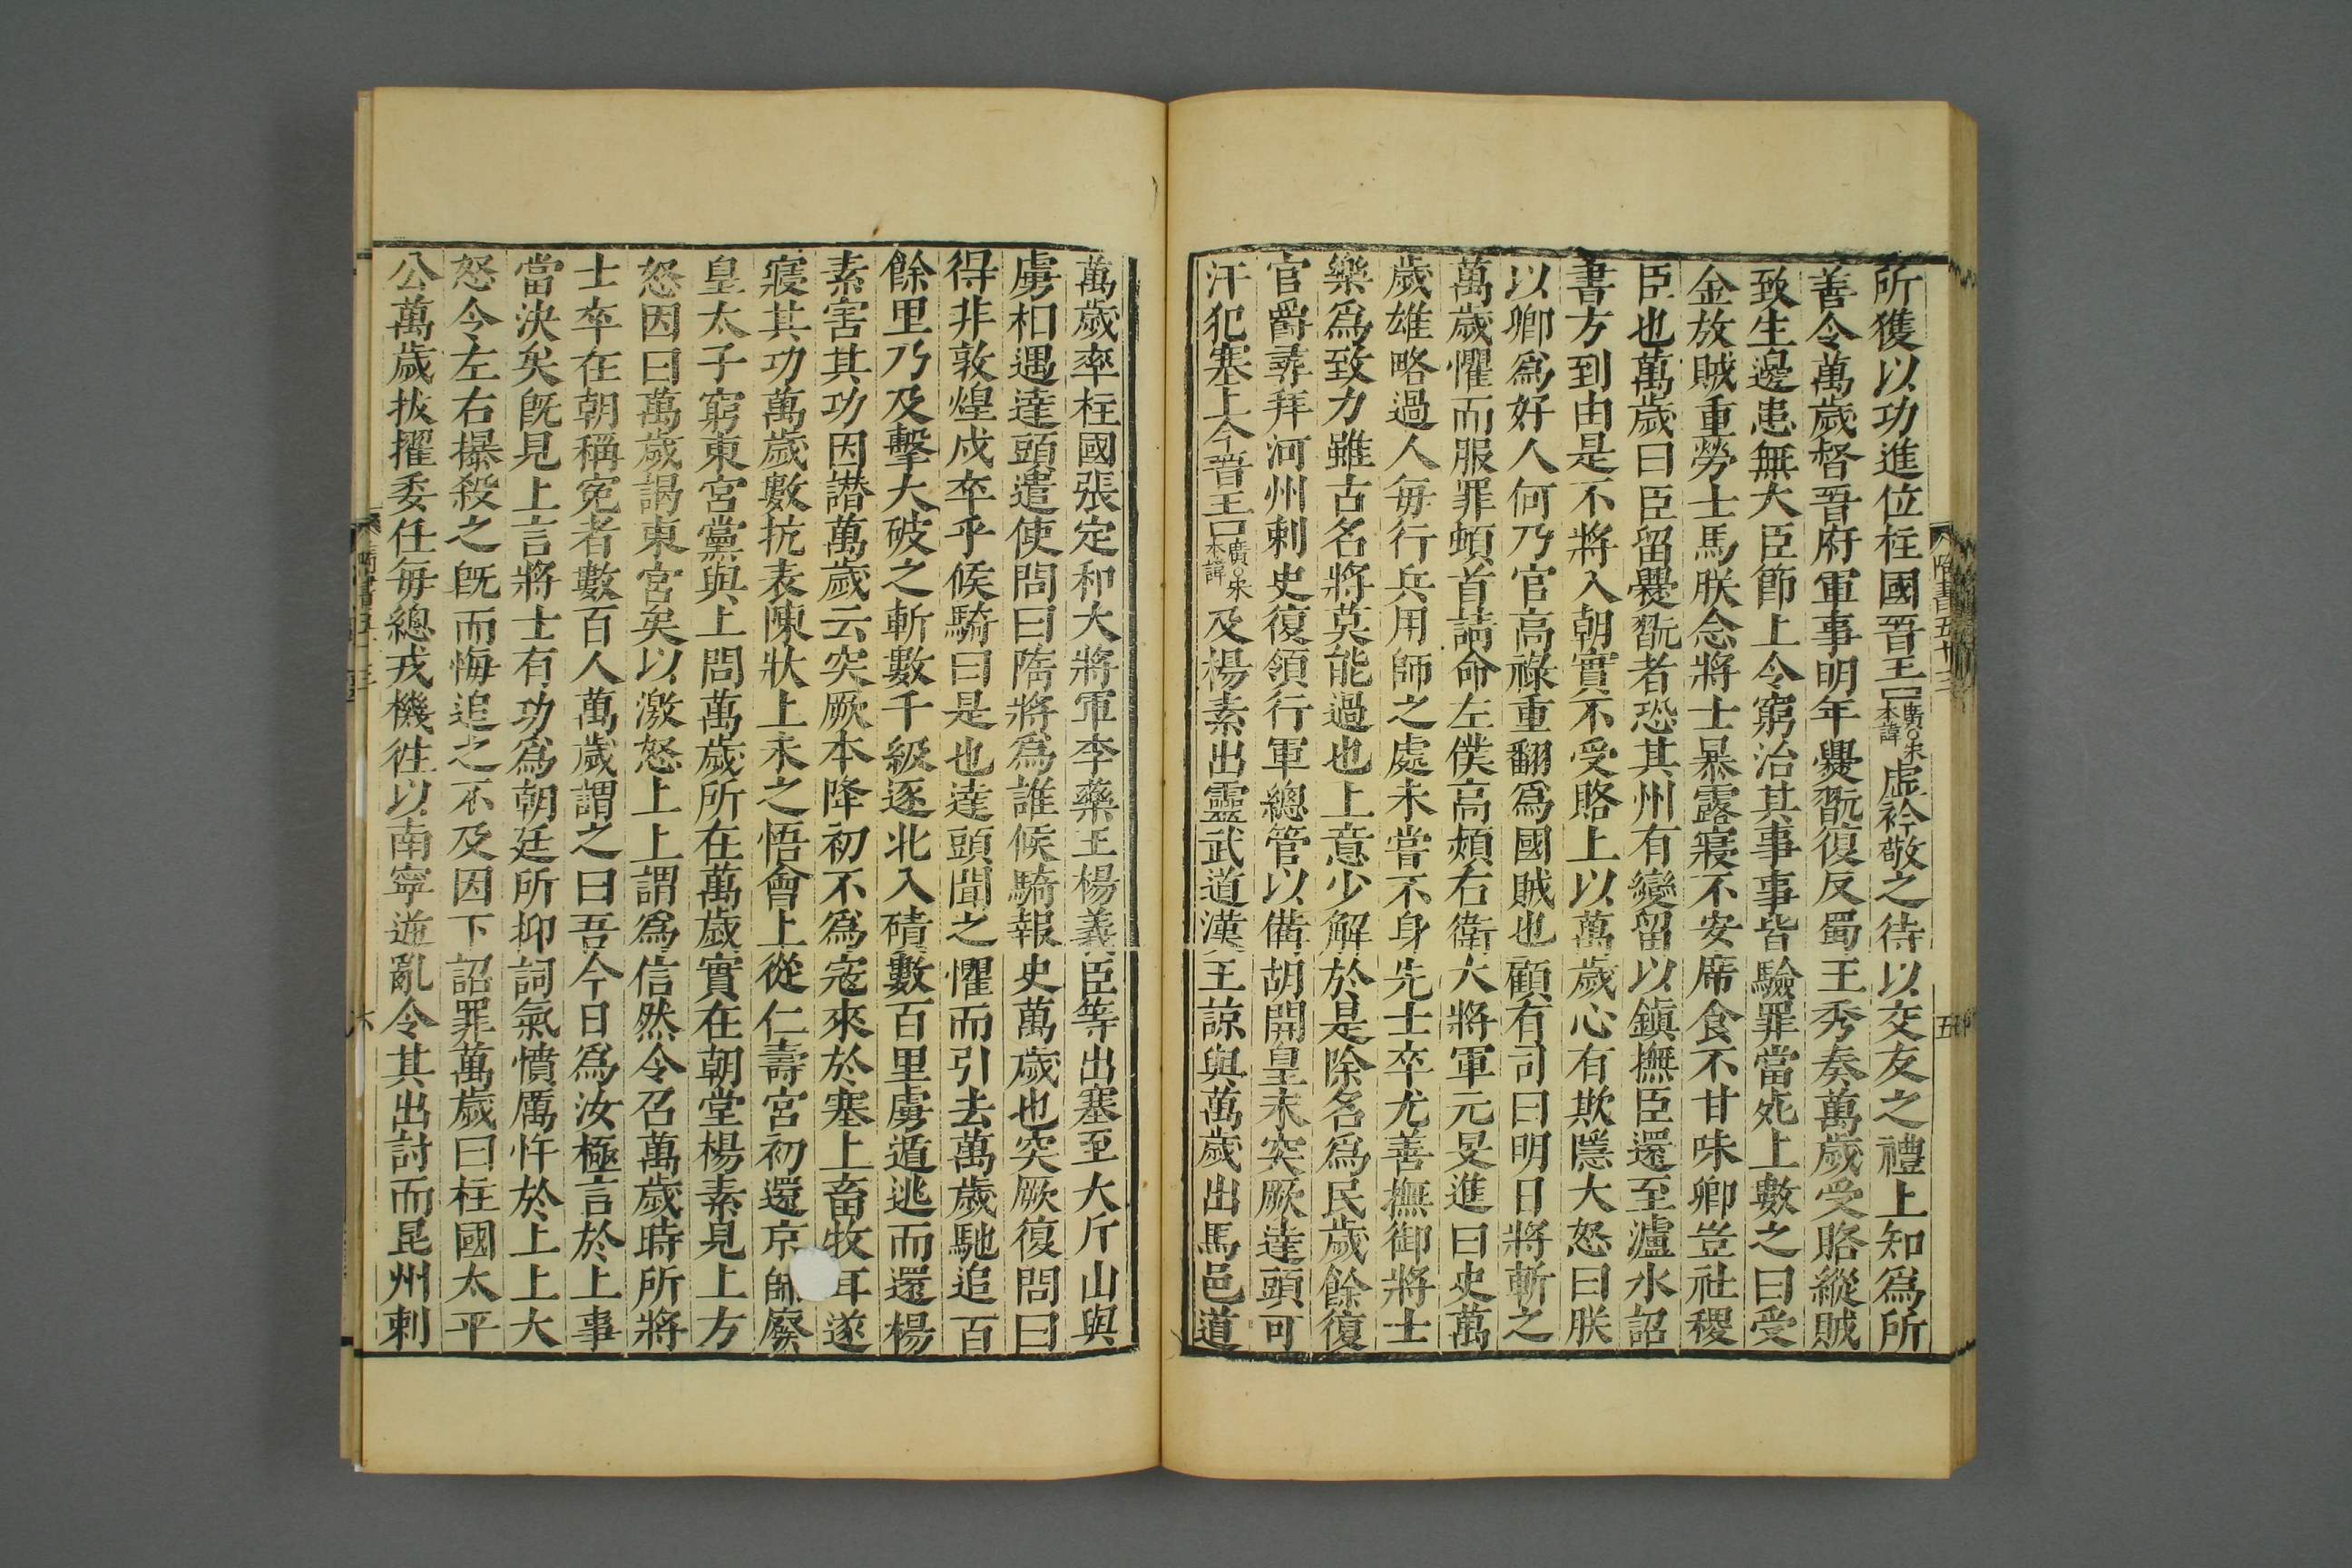 所獲以功進位柱國晉王囗廣○宋本諱虛衿敬之待以交友之禮上知爲所
善令萬歲督晉府軍事明年爨翫復反蜀王秀奏萬歲受賂縱賊
致生邊患無大臣節上令窮治其事事皆驗罪當死上數之曰受
金放賊重勞士馬朕念將士暴露寢不安席食不甘味卿豈社稷
臣也萬歲曰臣留爨翫者恐其州有變留以鎭撫臣還至瀘水詔
書方到由是不將入朝實不受賂上以萬歲心有欺隱大怒曰朕
以卿爲好人何乃官高祿重翻爲國賊也顧有司曰明日將斬之
萬歲懼而服罪頓首請命左僕高熲右衛大將軍元旻進曰史萬
歲雄略過人每行兵用師之處未嘗不身先士卒尤善撫御將士
樂爲致力雖古名將莫能過也上意少解於是除名爲民歲餘復
官爵尋拜河州刺史復領行軍總管以備胡開皇末突厥達頭可
汗犯塞上令晉王囗廣○宋本諱及楊素出靈武道漢王諒與萬歲出馬邑道
隋書五十三
五
萬歲率柱國張定和大將軍李藥王楊義臣等出塞至大斤山與
虜相遇達頭遣使問曰隋將爲誰候騎報史萬歲也突厥復問曰
得非敦煌戍卒乎候騎曰是也達頭聞之懼而引去萬歲馳追百
餘里乃及擊大破之斬數千級逐北入磧數百里虜遁逃而還楊
素害其功因譖萬歲云突厥本降初不爲寇來於塞上畜牧耳遂
寢其功萬歲數抗表陳狀上未之悟會上從仁壽宮初還京師廢
皇太子窮東宮黨與上問萬歲所在萬歲實在朝堂楊素見上方
怒因曰萬歲謁東宮矣以激怒上上謂爲信然令召萬歲時所將
士卒在朝稱冤者數百人萬歲謂之曰吾今日爲汝極言於上事
當決矣旣見上言將士有功爲朝廷所抑詞氣憤厲忤於上上大
怒令左右㩧殺之旣而悔追之不及因下詔罪萬歲曰柱國太平
公萬歲拔擢委任每總戎機往以南寧逆亂令其出討而昆州刺
六